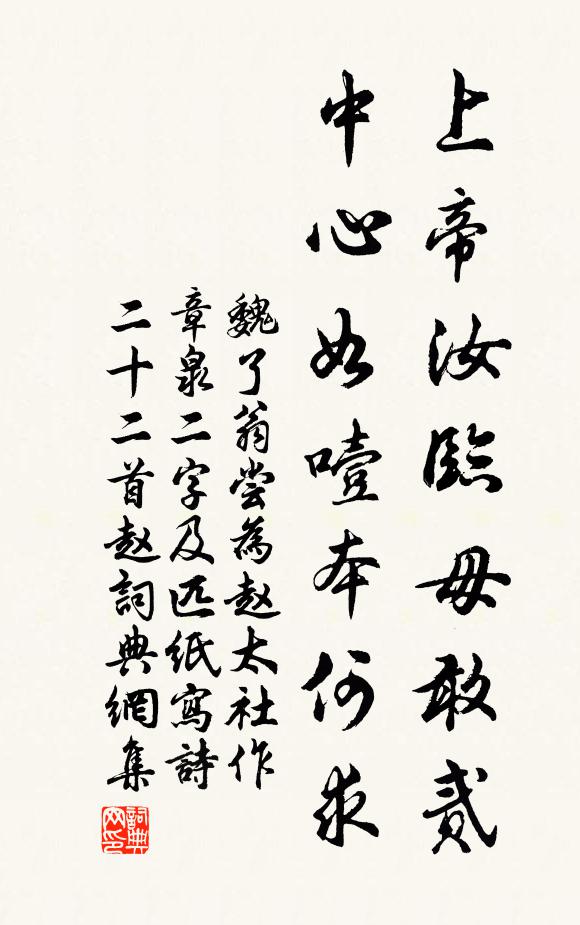 上帝汝臨毋敢貳
中心如噎本何求
魏了翁嘗為赵太社作
章泉二字及匹紙寫詩
二十二首赵詞典網集
詞典网印